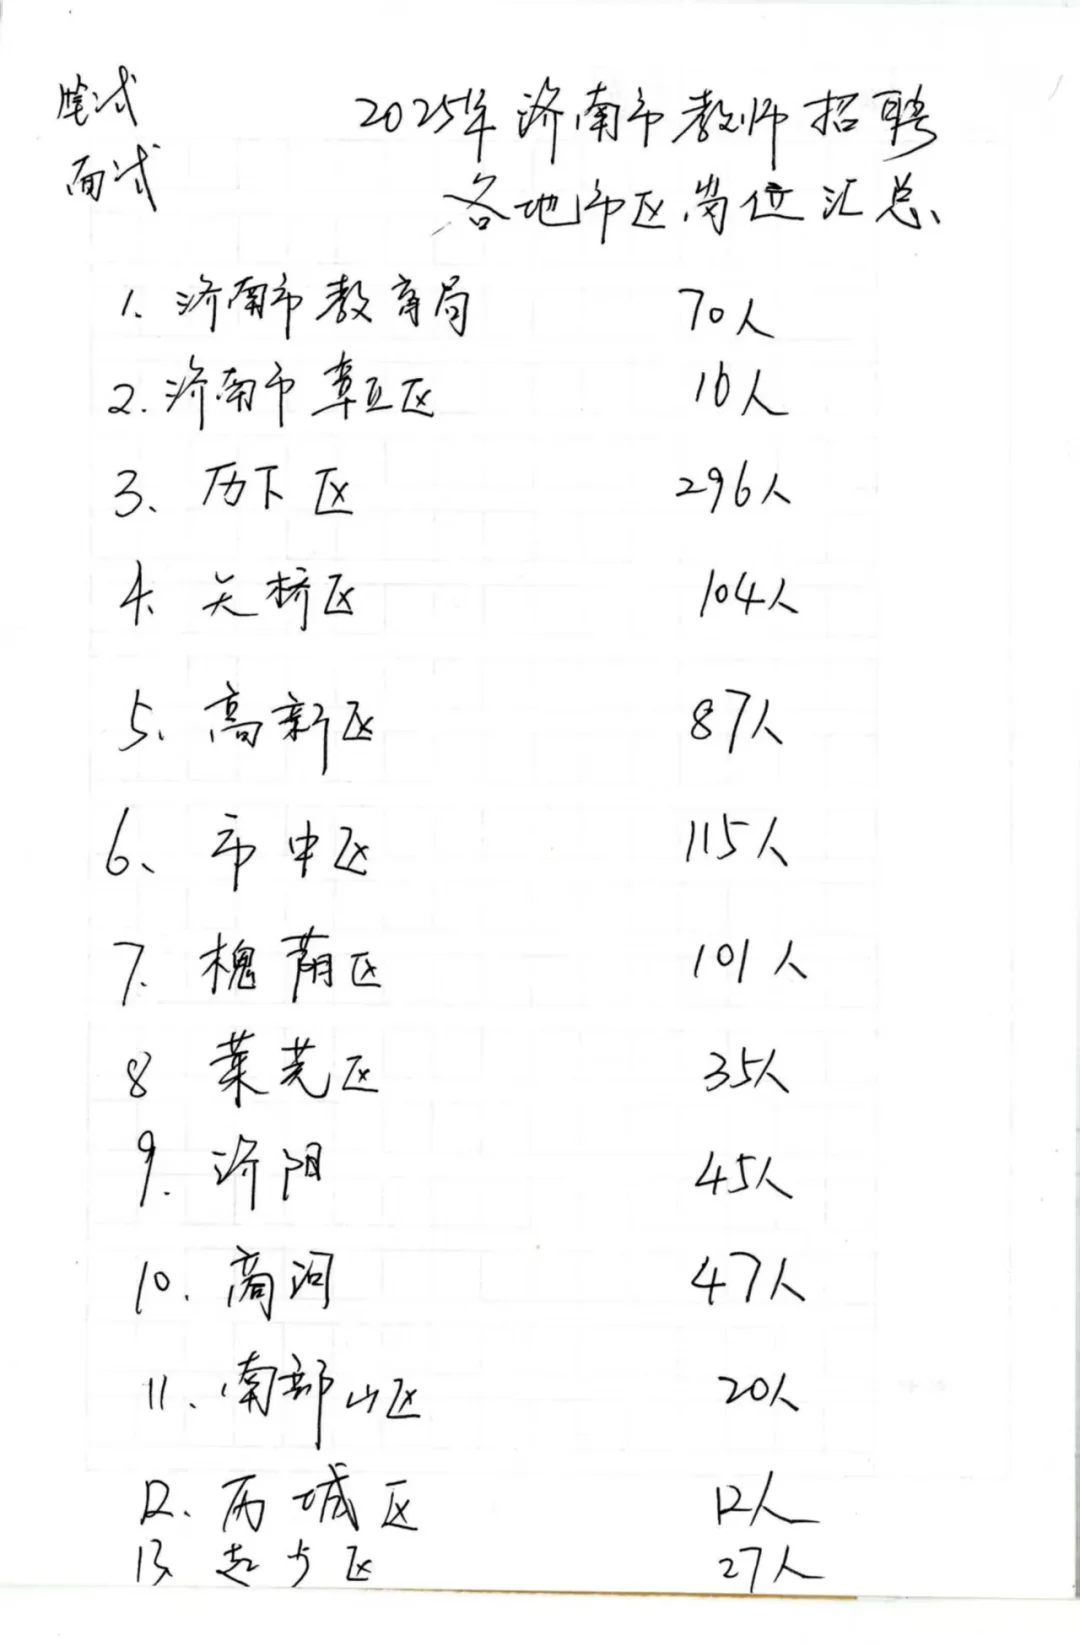 笔试
面试
2025年济南市教师招聘
各地市区岗位汇总
1. 济南市教育局 70人
2. 济南市章丘区 16人
3、历下区 296人
4、天桥区 104人
5、高新区 87人
6、市中区 115人
7、槐荫区 101人
8 莱芜区 35人
9. 济阳 45人
10. 商河 47人
11、南部山区 20人
12、历城区 12人
13 起步区 27人